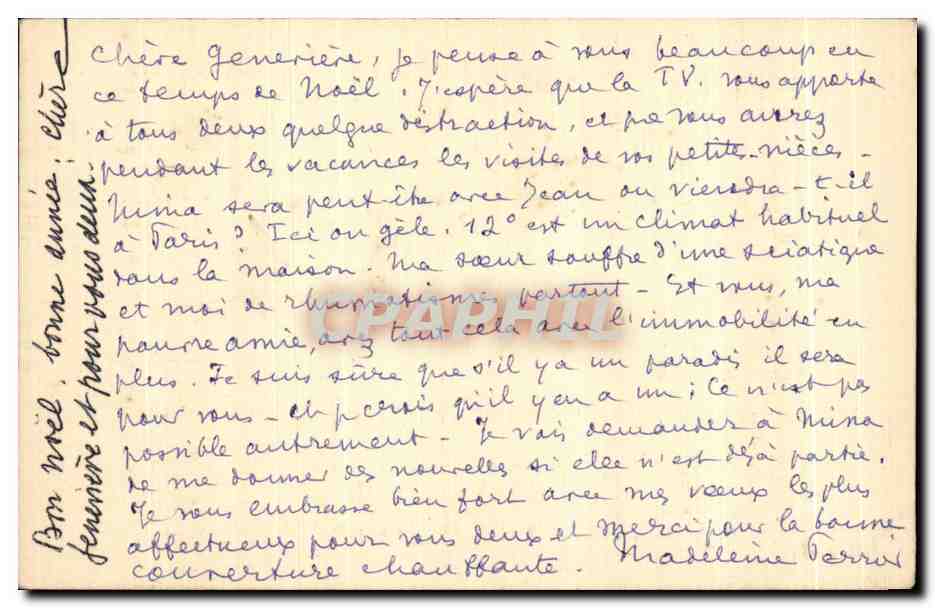 Chère Geneviève, je pense à vous beaucoup en
ce temps de Noël. J'espère que la TV. vous apporte
à tous deux quelque distraction, et que vous aurez
pendant les vacances les visites de vos petites-nièces -
Mina sera peut-être avec Jean ou viendra-t-il
à Paris? Ici on gèle. 12° est un climat habituel
dans la maison. Ma sœur souffre d'une sciatique
et moi de rhumatismes partout - Et vous, ma
pauvre amie, avez tout cela avec l'immobilité en
plus. Je suis sûre que s'il y a un paradis il sera
pour vous - et je crois qu'il y en a un; Ce n'est pas
possible autrement - Je vais demander à Mina
de me donner des nouvelles si elle n'est déjà partie.
Je vous embrasse bien fort avec mes vœux les plus
affectueux pour vous deux et merci pour la bonne
couverture chauffante. Madeleine
Bon Noël, bonne année, chère
Geneviève et pour vous deux.
CPAPHIL